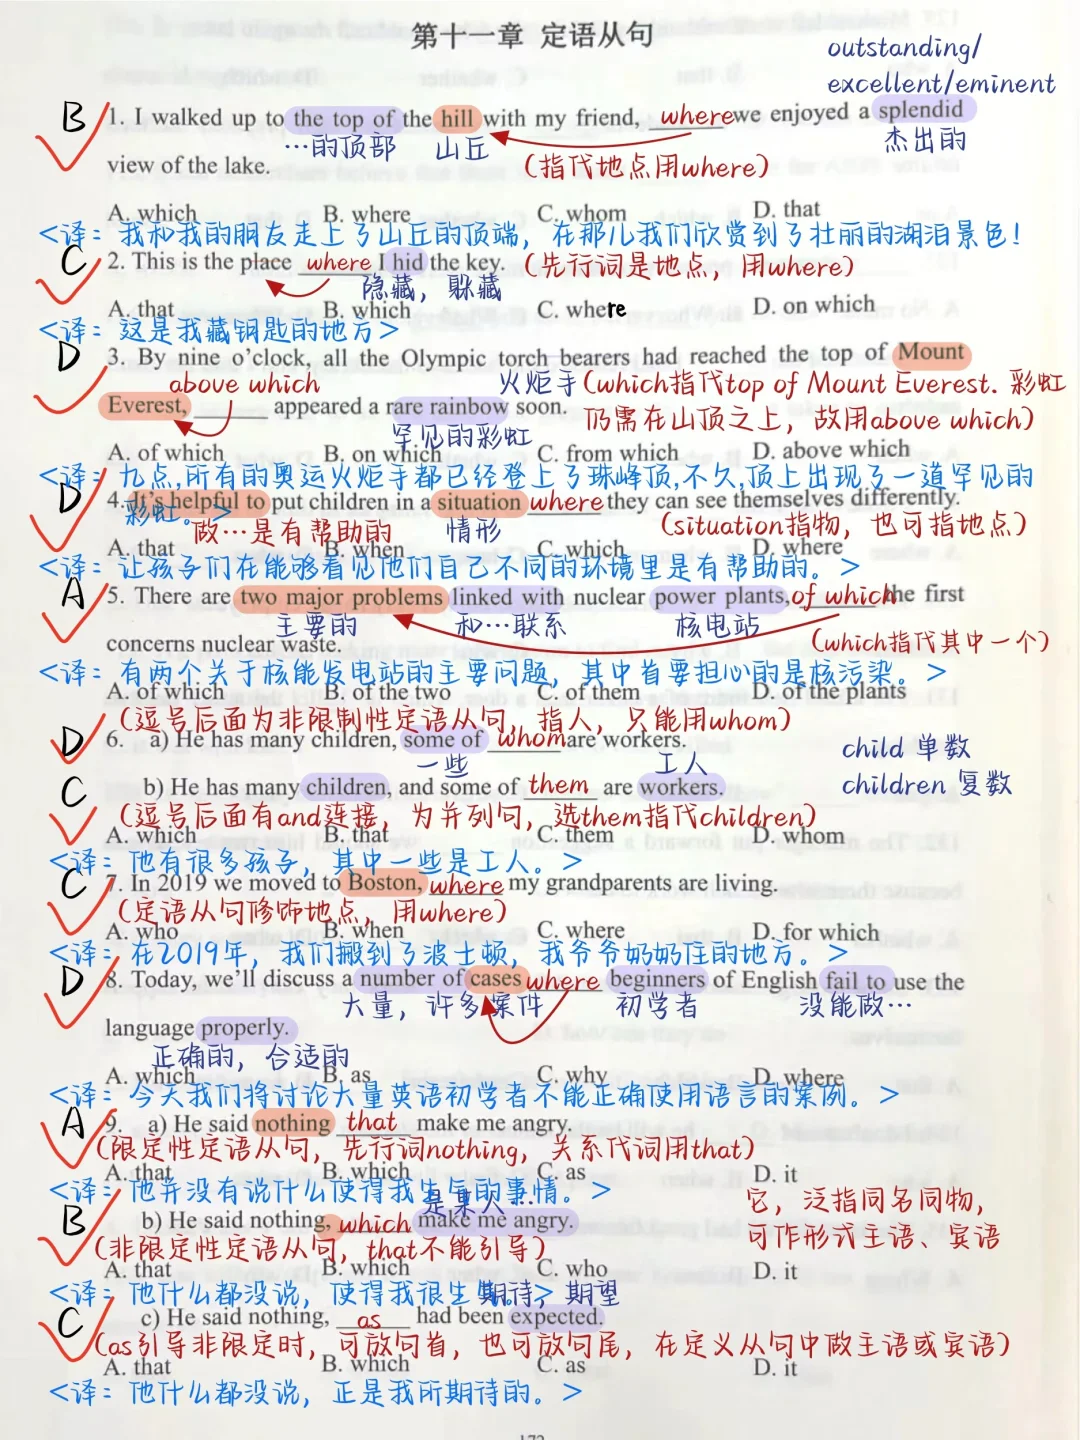 第十一章 定语从句
outstanding/
excellent/eminent
B 1. I walked up to the top of the hill with my friend, where we enjoyed a splendid
…的顶部 山丘 杰出的
view of the lake. (指代地点用where)
A. which B. where C. whom D. that
<译: 我和我的朋友走上了山丘的顶端, 在那儿我们欣赏到了壮丽的湖泊景色!
C 2. This is the place where I hid the key. (先行词是地点, 用where)
隐藏, 躲藏
A. that B. which C. where D. on which
<译: 这是我藏钥匙的地方>
D 3. By nine o'clock, all the Olympic torch bearers had reached the top of Mount
above which 火炬手 (which指代top of Mount Everest. 彩虹
Everest, ______ appeared a rare rainbow soon. 仍需在山顶之上, 故用above which)
罕见的彩虹
A. of which B. on which C. from which D. above which
<译: 九点,所有的奥运火炬手都已经登上了珠峰顶,不久,顶上出现了一道罕见的
彩虹。>
D 4. It's helpful to put children in a situation where they can see themselves differently.
做…是有帮助的 情形 (situation指物, 也可指地点)
A. that B. when C. which D. where
<译: 让孩子们在能够看见他们自己不同的环境里是有帮助的。>
A 5. There are two major problems linked with nuclear power plants, of which the first
主要的 和…联系 核电站
concerns nuclear waste. (which指代其中一个)
<译: 有两个关于核能发电站的主要问题, 其中首要担心的是核污染。>
A. of which B. of the two C. of them D. of the plants
(逗号后面为非限制性定语从句, 指人, 只能用whom)
D 6. a) He has many children, some of whom are workers.
一些 工人 child 单数
children 复数
C b) He has many children, and some of them are workers.
(逗号后面有and连接, 为并列句, 选them指代children)
A. which B. that C. them D. whom
<译: 他有很多孩子, 其中一些是工人。>
C 7. In 2019 we moved to Boston, where my grandparents are living.
(定语从句修饰地点, 用where)
A. who B. when C. where D. for which
<译: 在2019年, 我们搬到了波士顿, 我爷爷奶奶住的地方。>
D 8. Today, we'll discuss a number of cases where beginners of English fail to use the
大量, 许多 案件 初学者 没能做…
language properly.
正确的, 合适的
A. which B. as C. why D. where
<译: 今天我们将讨论大量英语初学者不能正确使用语言的案例。>
A 9. a) He said nothing that make me angry.
(限定性定语从句, 先行词nothing, 关系代词用that)
A. that B. which C. as D. it
<译: 他并没有说什么使得我生气的事情。>
使某人… 它, 泛指同名同物,
B b) He said nothing, which make me angry. 可作形式主语、宾语
(非限定性定语从句, that不能引导)
A. that B. which C. who D. it
<译: 他什么都没说, 使得我很生气。> 期待, 期望
C c) He said nothing, as had been expected.
(as引导非限定时, 可放句首, 也可放句尾, 在定义从句中做主语或宾语)
A. that B. which C. as D. it
<译: 他什么都没说, 正是我所期待的。>